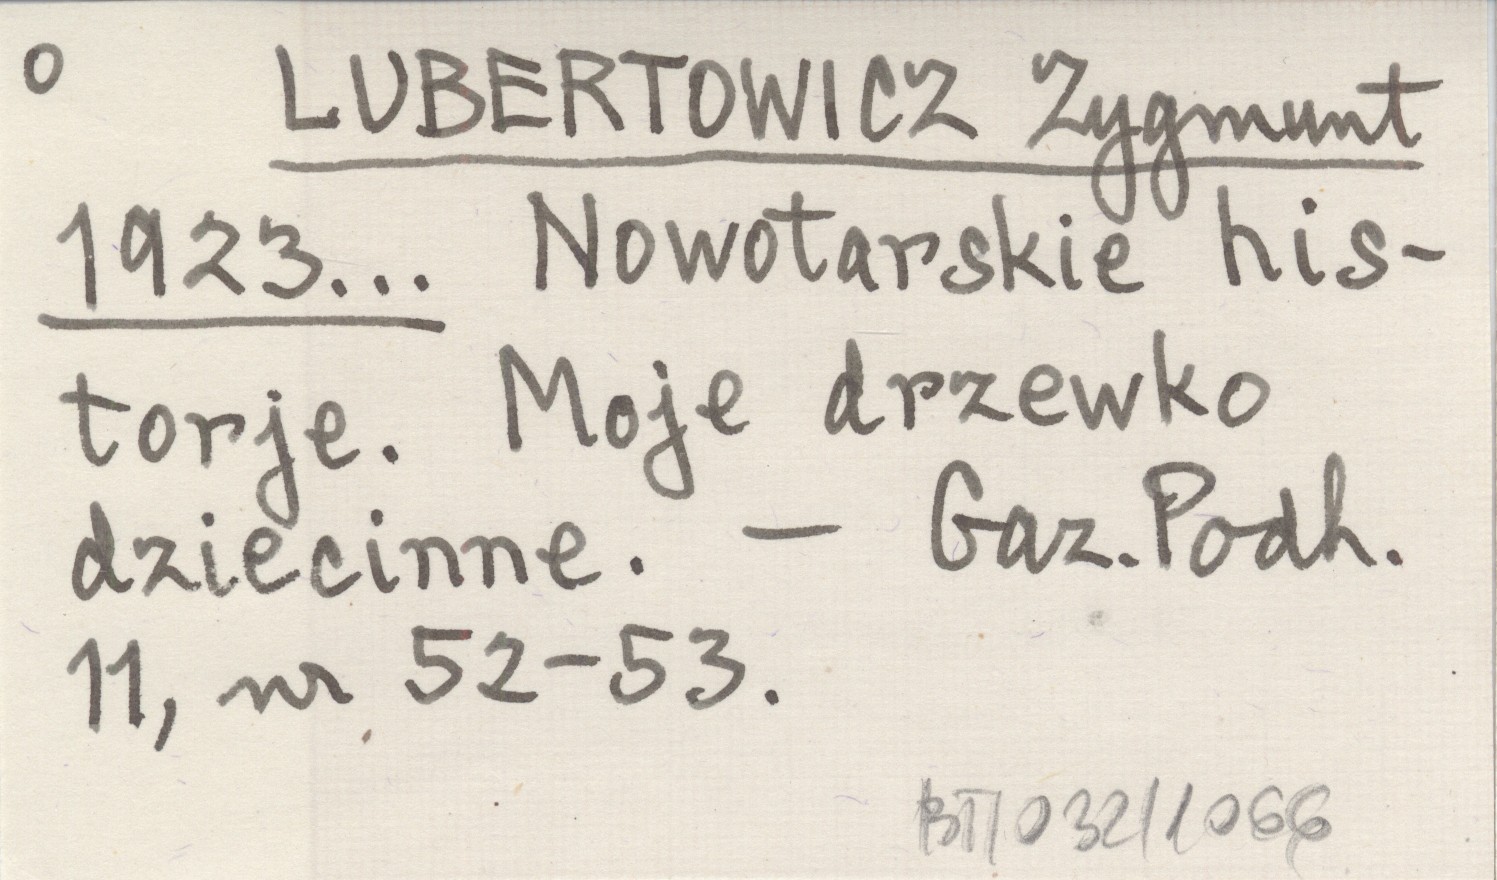 o LUBERTOWICZ Zygmunt
1923... Nowotarskie his-
torje. Moje drzewko
dziecinne. — Gaz. Podh.
11, nr 52-53.
BT/032/1066